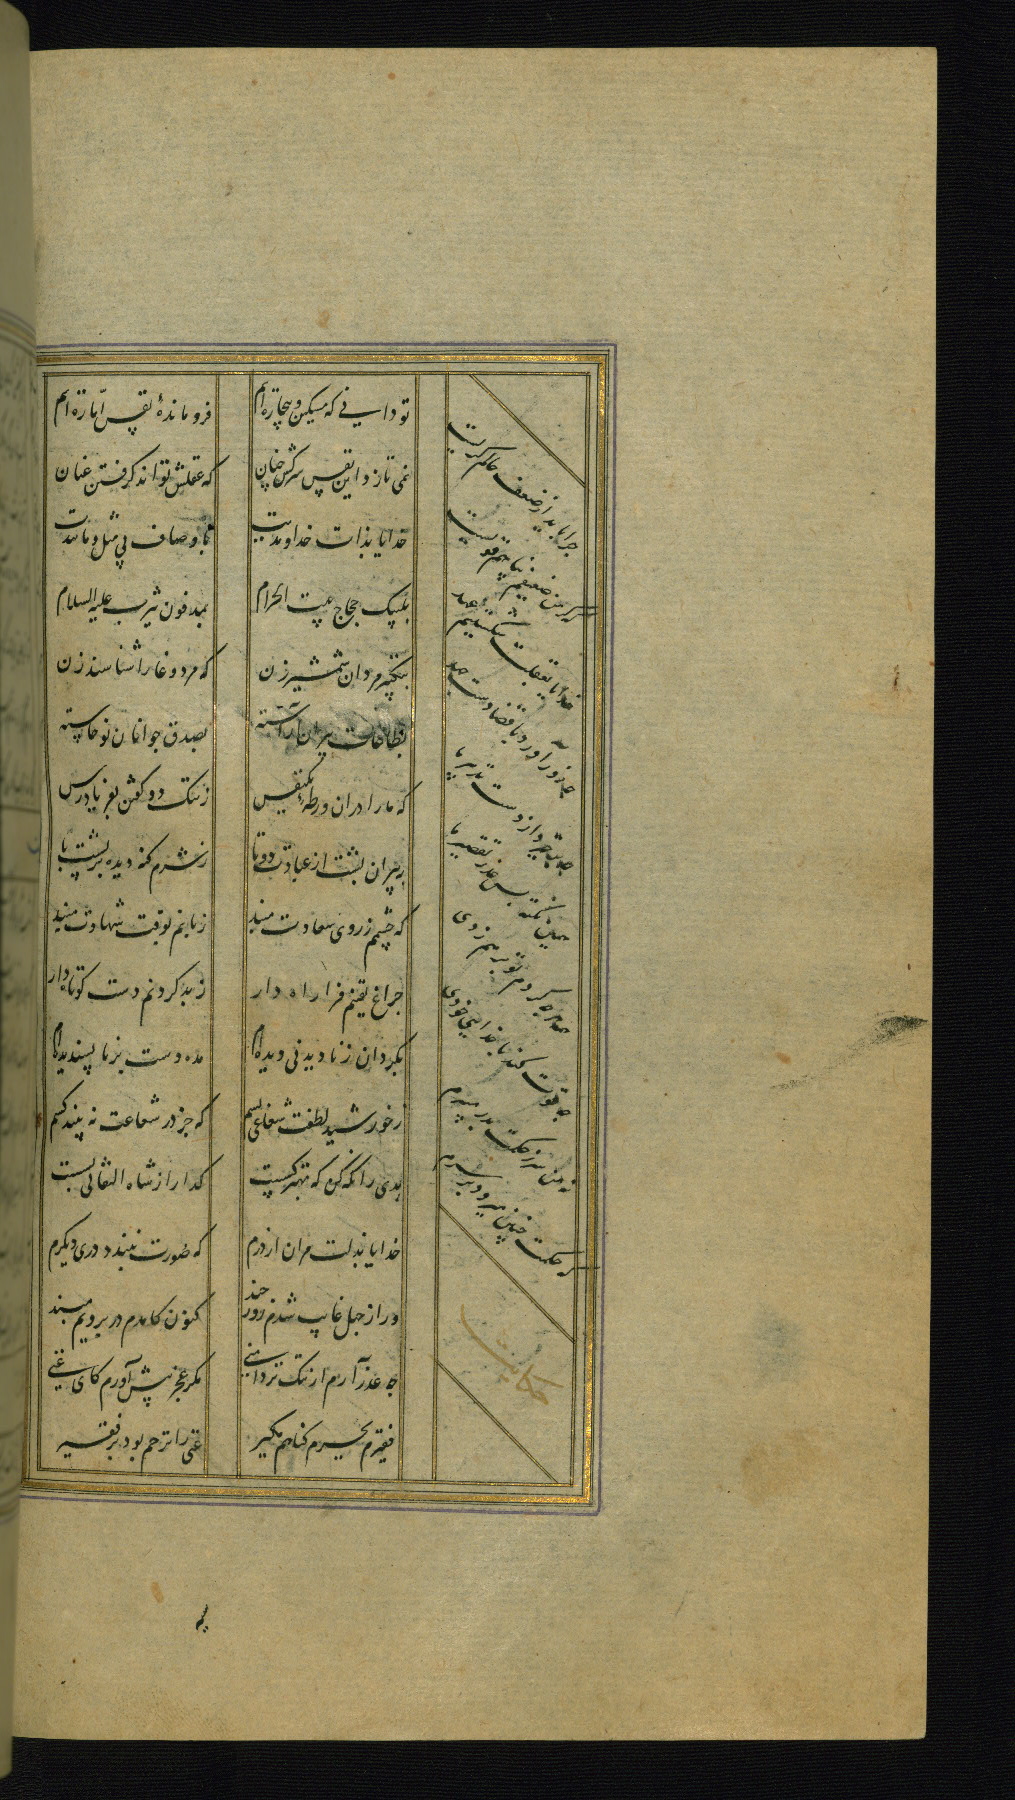 تو دانی که مسکین و بیچاره‌ایم فرو مانده نفس اماره‌ایم
نمی تازد این نفس سرکش چنان که عقلش تواند گرفتن عنان
خدایا بذات خداوندیت باوصاف بی مثل و مانندیت
بلبیک حجاج بیت الحرام بمدفون یثرب علیه السلام
بتکبیر مردان شمشیر زن که مرد وغا را شناسند زن
بطاعات پیران آراسته بصدق جوانان نوخاسته
که ما را در آن ورطه یکنفس ز ننک دو گفتن بفریاد رس
به پیران پشت از عبادت دوتا ز شرم گنه دیده بر پشت پا
که چشمم ز روی سعادت مبند زبانم بوقت شهادت مبند
چراغ یقینم فرا راه دار ز بد کردنم دست کوتاه دار
بگردان ز نادیدنی دیده‌ام مده دست بر ناپسندیده‌ام
ز خورشید لطفت شعاعی بسم که جز در شعاعت نه بیند کسم
بدی را نگه کن که بهتر کسیست گدا را ز شاه التفاتی بسست
خدایا بذلت مران از درم که صورت نبندد دری دیگرم
ور از جهل غایب شدم روز چند کنون کامدم در برویم مبند
چه عذر آرم از ننک تردامنی مگر عجز پیش آورم کای غنی
فقیرم بجرم گناهم مگیر غنی را ترحم بود بر فقیر
چرا باید از ضعف حالم گریست
اگر من ضعیفم پناهم قویست
خدایا بغفلت شکستیم عهد
چه زور آورد با قضا دست جهد
چه برخیزد از دست تدبیر ما
همین نکته بس عذر تقصیر ما
همه هر چه کردم تو بر هم زدی
چه قوت کند با خدایی خودی
نه من سر ز حکمت بدر میبرم
که حکمت چنین میرود بر سرم
حکایت